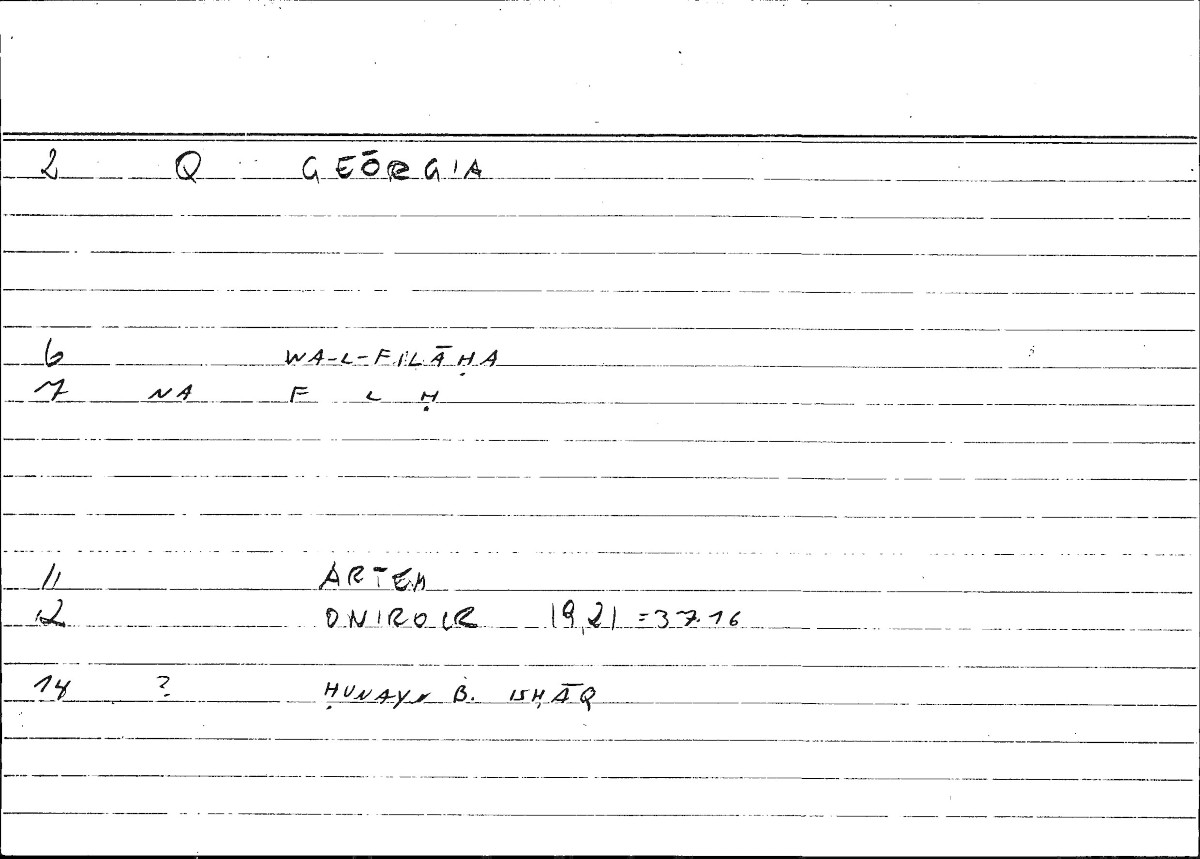 2 Q GEŌRGIA
6 WA-L-FILĀḤA
7 NA F L Ḥ
11 ARTEM
12 ONIROCR 19,21 = 37.16
14 ? ḤUNAYN B. ISḤĀQ